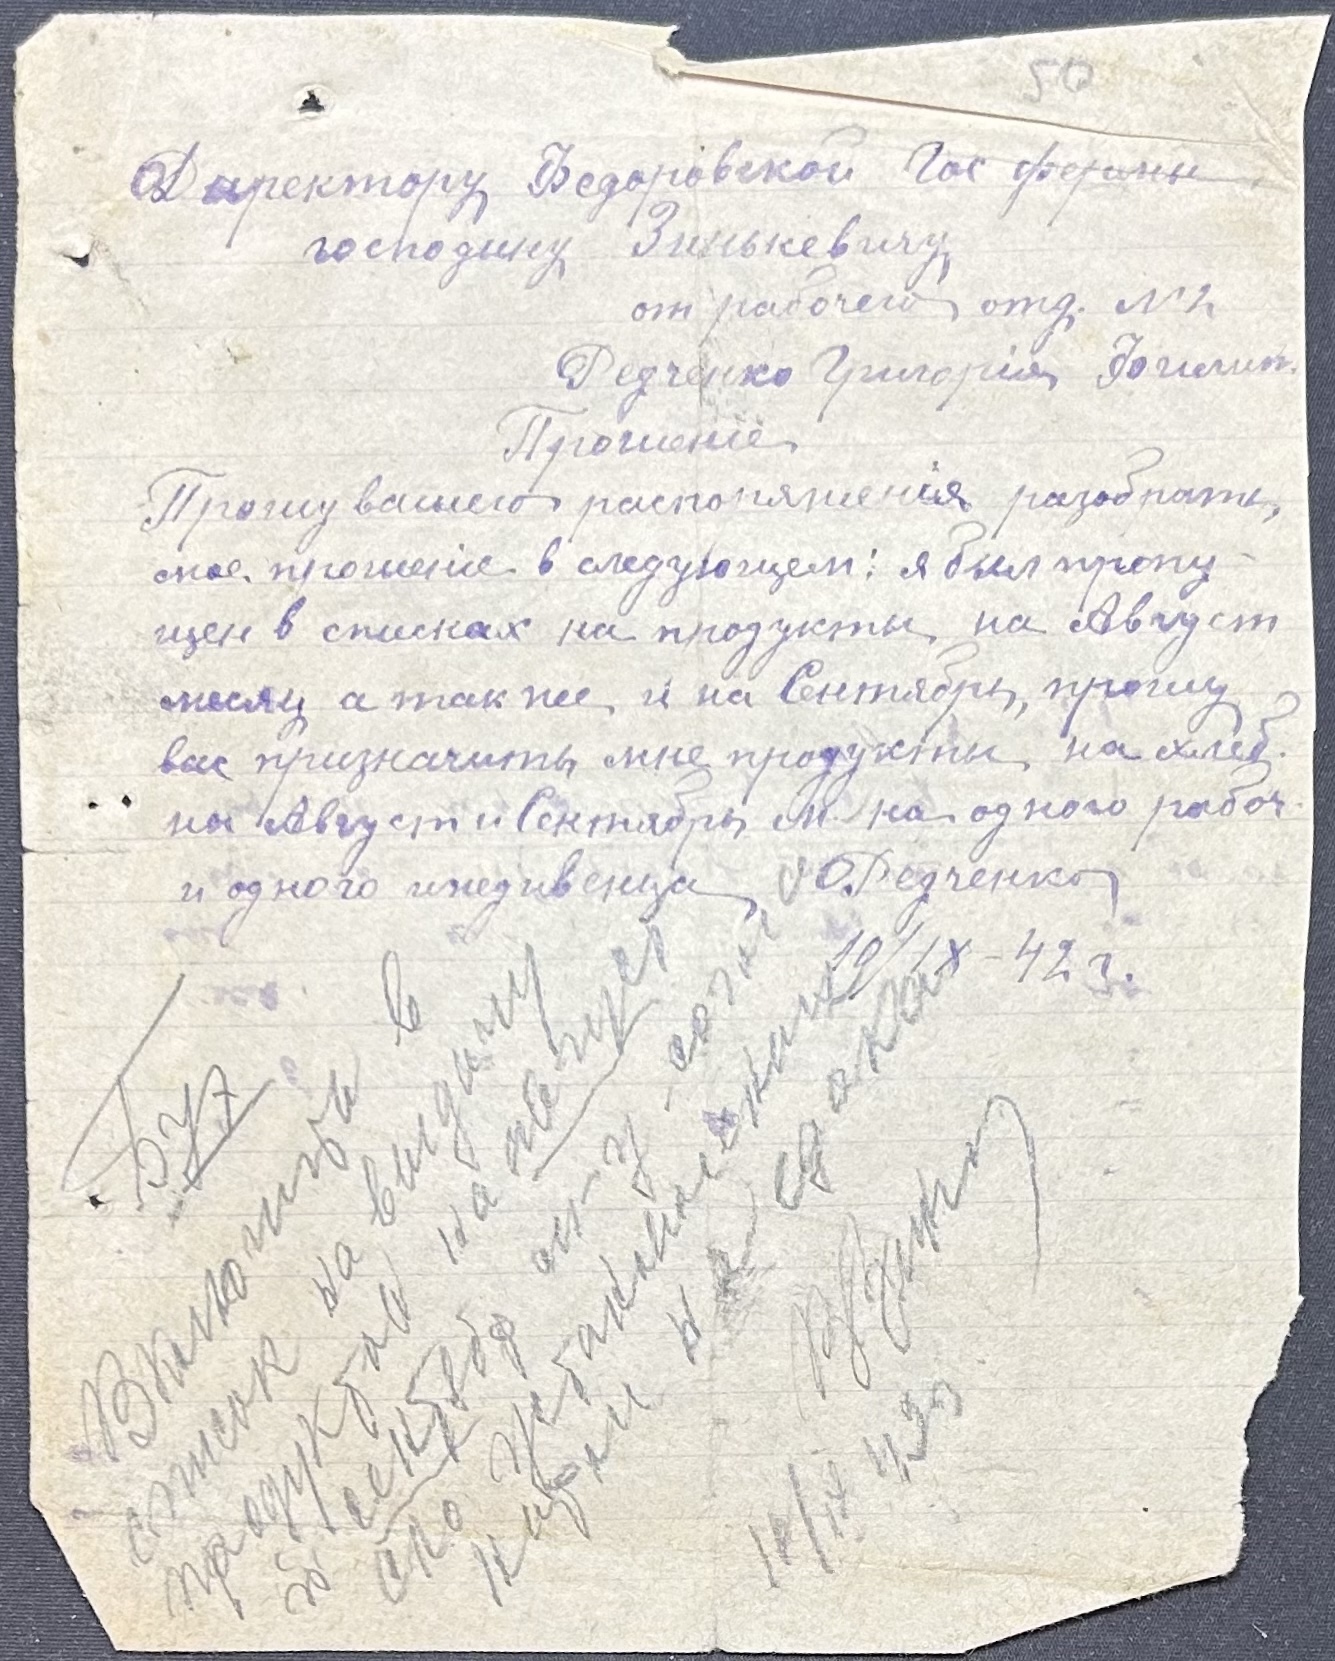 50
Директору Федоровской Гос фермы
господину Зинькевичу
от рабочего отд. №2
Редченко Григорія
Прошеніе
Прошу вашего распоряженія разобрать
мое прошеніе в следующем: я был пропу-
щен в списках на продукты на Август
месяц а так же и на Сентябрь, прошу
вас призначить мне продукты на хлеб.
на Август и Сентябрь м. на одного рабоч.
и одного иждивенца Редченко
10/IX-42 г.
Включить в
список на выдачу
продуктов на август
и сентябр
на
10/IX 42г